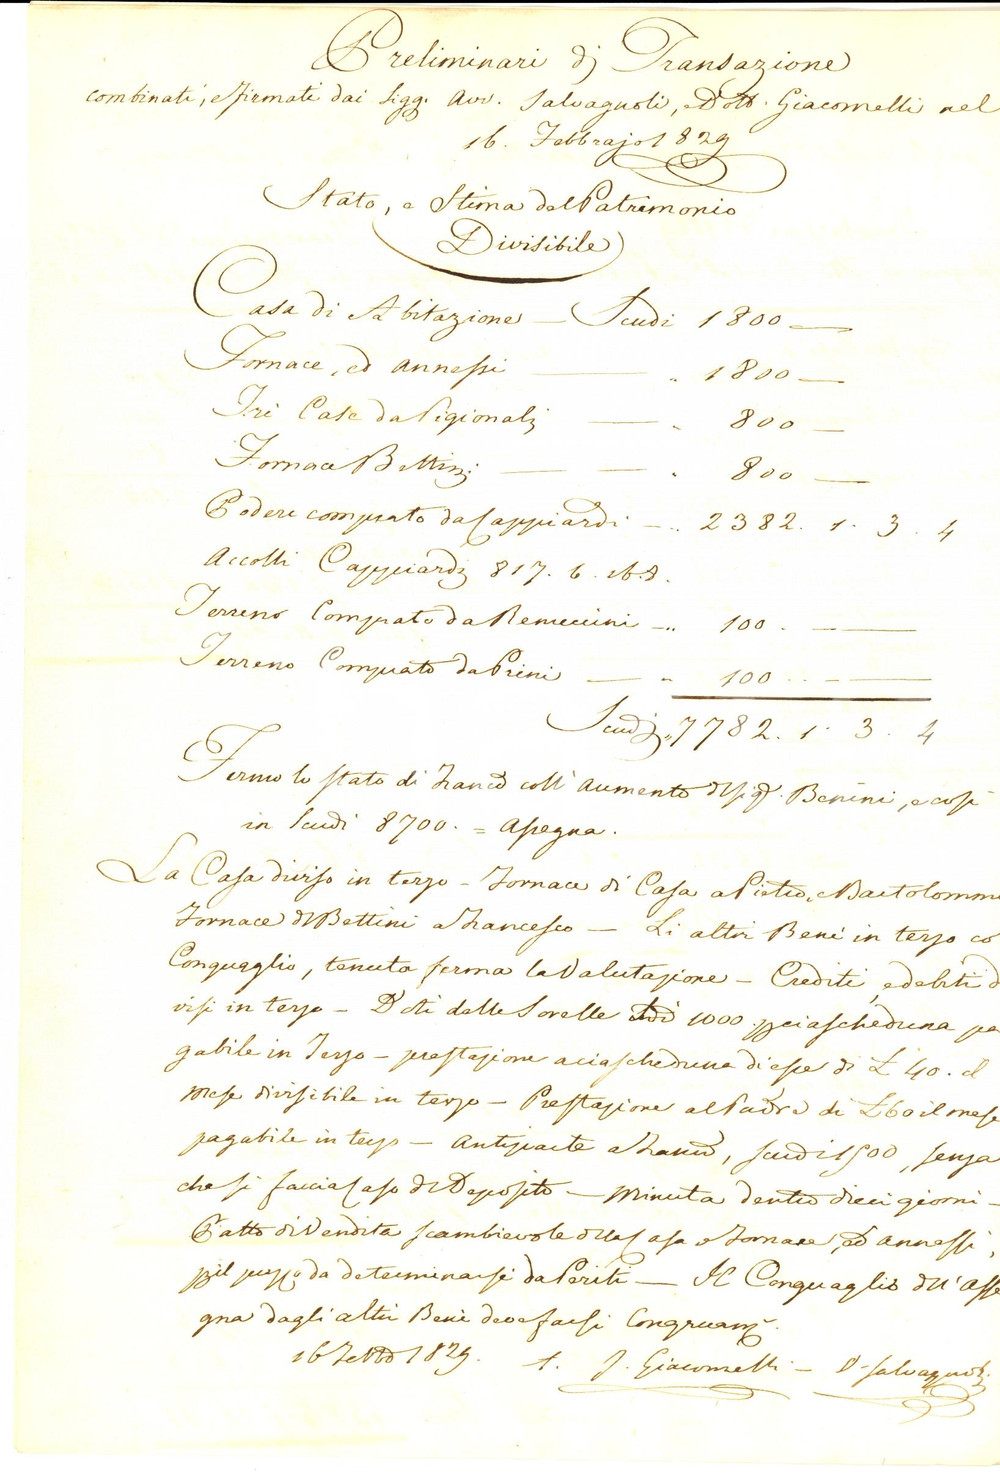 Preliminari di Transazione
combinati, e firmati dai Sigg. Avv. Salvagnoli, e Dott. Giacomelli nel
16. Febbrajo 1829
Stato, e Stima del Patrimonio
Divisibile
Casa di Abitazione — Scudi 1800 —
Fornace, ed annessi — „ 1800 —
Tre Case da Pigionali — „ 800 —
Fornace Bettini — — „ 800 —
Podere comprato da Cappiardi — „ 2382. 1. 3. 4
Accolli Cappiardi 817. 6. 16. 8.
Terreno Comprato da Remeccini — „ 100. —
Terreno Comprato da Prini — „ 100 . . —
Scudi „ 7782. 1. 3. 4
Fermo lo stato di Franco coll' aumento del Sigr. Benini, e così
in Scudi 8700. = Assegna.
La Casa diviso in terzo - Fornace di Casa a Pietro, e Bartolommeo
Fornace di Bettini a Francesco — Li altri Beni in terzo co
Conguaglio, tenuta ferma la Valutazione — Crediti, e debiti di
visi in terzo — Doti delle Sorelle Scudi 1000 p ciascheduna pa
gabile in Terzo — prestazione a ciascheduna di esse di £ 40. al
mese divisibile in terzo — Prestazione al Padre di £ 60 il mese
pagabile in terzo — Antiparte a Franco, scudi 1500, senza
che si faccia Caso di Deposito — Minuta dentro dieci giorni —
Patto di Vendita scambievole della Casa e Fornace, ed annessi,
pil prezzo da determinarsi da Periti — Il Conguaglio dell' Asse
gna dagli altri Beni deve farsi Congruamte.
16 Febbo 1829. F. Giacomelli — V. Salvagnoli